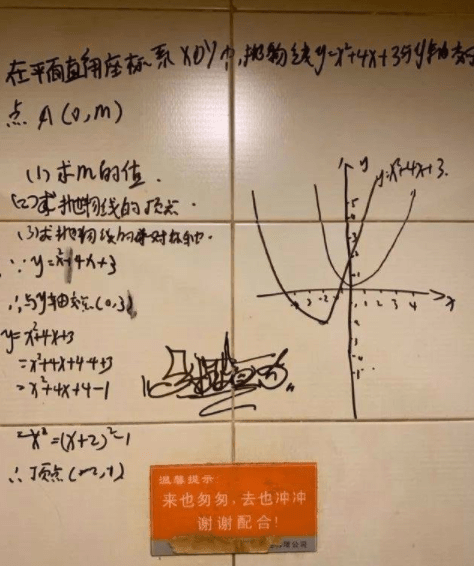 在平面直角坐标系XOY中,抛物线y=x²+4x+3与y轴交于
点A(0,m)
(1)求m的值.
(2)求抛物线的顶点.
(3)求抛物线的对称轴.
∵y=x²+4x+3
∴与y轴交点(0,3)
y=x²+4x+3
=x²+4x+4-4+3
=x²+4x+4-1
=(x+2)²-1
∴顶点(-2,-1)
y
y=x²+4x+3.
x
温馨提示
来也匆匆,去也冲冲
谢谢配合!